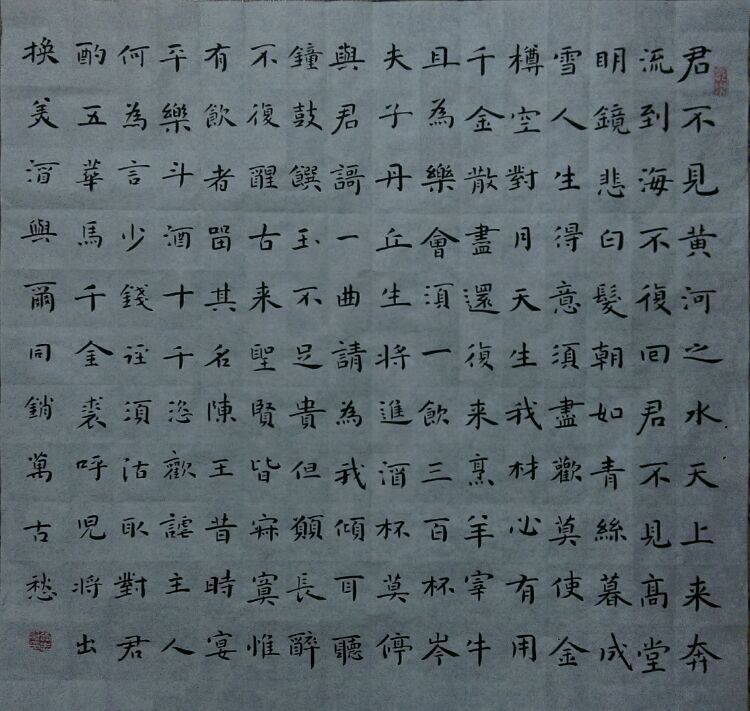 君不見黄河之水天上来奔
流到海不復回君不見高堂
明鏡悲白髮朝如青絲暮成
雪人生得意須盡歡莫使金
樽空對月天生我材必有用
千金散盡還復来烹羊宰牛
且為樂會須一飲三百杯岑
夫子丹丘生将進酒杯莫停
與君謌一曲請為我傾耳聽
鐘鼓饌玉不足貴但願長醉
不復醒古来聖賢皆寂寞惟
有飲者留其名陳王昔時宴
平樂斗酒十千恣歡謔主人
何為言少錢径須沽取對君
酌五華馬千金裘呼児将出
换美酒與爾同銷萬古愁